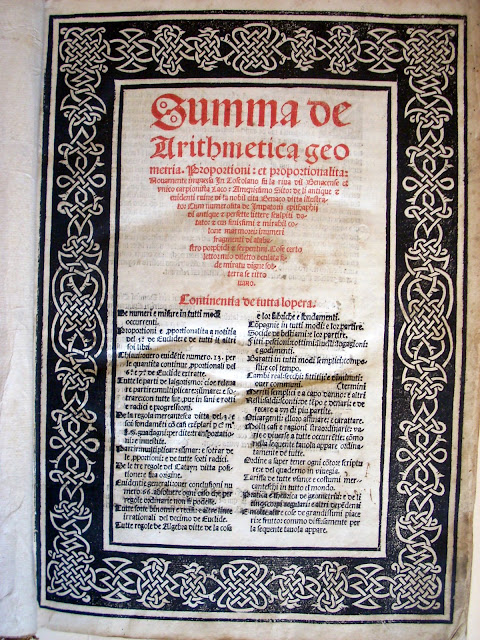 Summa de
Arithmetica geo
metria. Proportioni: et proportionalita:
Novamente impressa In Toscolano su la riva dil Benacense et
unico carpionista Laco: Amenissimo Sito: de li antique &
evidenti ruine di la nobil cita Benaco ditta illustra-
to: Cum numerosita de Impatorii epithaphii
di antique & perfette littere sculpiti do-
tato: & cum finissimi & mirabil co-
lone marmorei: inumeri
fragmenti di alaba-
stro porphidi & serpentini. Cose certo
lettor mio diletto oculata fi-
de miratu digne sot-
terra se ritro
vano.
Continentia de tutta lopera.
De numeri e misure in tutti modi
occurrenti.
Proportioni e ꝓportionalita a notitia
del 5° de Euclide e de tutti li altri
soi libri.
Chiavi overo evidẽtie numero .13. per
le quantita continue ꝓportionali del
6° e 7° de Euclide extratte.
Tutte le parti de lalgorismo: cioe relevare
partire multiplicare summare e so-
trare con tutte sue ꝓve in sani e rotti
e radici e progressioni.
De la regola mercantesca ditta del .3. e
soi fondamẽti
Partire multiplicare summare e sotrar de
le ꝓportioni e de tutte sorti radici.
De le tre regole del Catayn ditta positione
e sua origine.
Evidentie generali over conclusioni numero
.66. absolvere ogni caso che per
regole ordinarie non si podesse.
Tutte sorte binomii e recisi e altre linee
irrationali del decimo de Euclide.
Tutte regole de Algebra ditte de la cosa
e lor fabriche e fondamenti.
Cõpagnie in tutti modi e lor partire.
Socide de bestiami e lor partire.
Fitti pesciõi cottimi livelli logagioni
e godimenti.
Baratti in tutti modi semplici composti
e col tempo.
Cambi reali secchi fittitii e diminuti
over communi.
Meriti semplici e a capo danno e altri
termini
Resti saldi sconti de tẽpo e denari e de
recare a un di piu partite.
Ori argenti e lloro affinare e carattare.
Molti casi e ragioni straordinarie varie
e diverse a tutte occurrẽtie como
nella sequente tavola appare ordinatamente
de tutte.
Ordine a saper tener ogni cõto e scripture
e del quaderno in vinegia.
Tariffa de tutte usanze e costumi mercanteschi
in tutto el mondo.
Pratica e theorica de geometria e de li
.5. corpi regulari e altri depẽdenti
E molte altre cose de grandissimi piaceri
e frutto como diffusamente per
la sequente tavola appare.